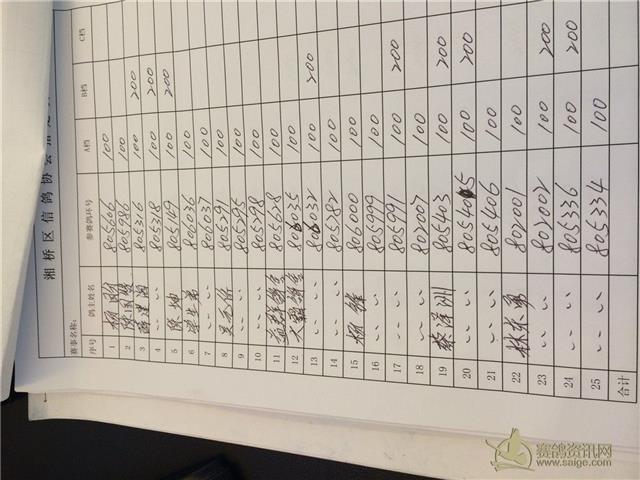 湘桥区信鸽协会指定
赛事名称:
序号 鸽主姓名 参赛鸽环号 A档 B档 C档
1 杨 805606 100
2 陈国 805986 100
3 805316 100 200
4 〃 〃 805318 100 200
5 陈坤 805149 100 200
6 806036 100
7 〃 〃 806037 100
8 805291 100
9 〃 〃 805295 100
10 〃 〃 805298 100
11 805628 100
12 806035 100
13 〃 〃 806032 100 200
14 〃 〃 805282 100
15 杨锋 806000 100
16 〃 〃 805999 100
17 〃 〃 805991 100 200
18 〃 〃 802007 100
19 蔡泽洲 805403 100 200
20 〃 〃 805405 100 200
21 〃 〃 805406 100
22 林东勇 802001 100
23 〃 〃 802002 100 200
24 〃 〃 805336 100 200
25 〃 〃 805334 100
合计
赛鸽资讯网
www.saige.com